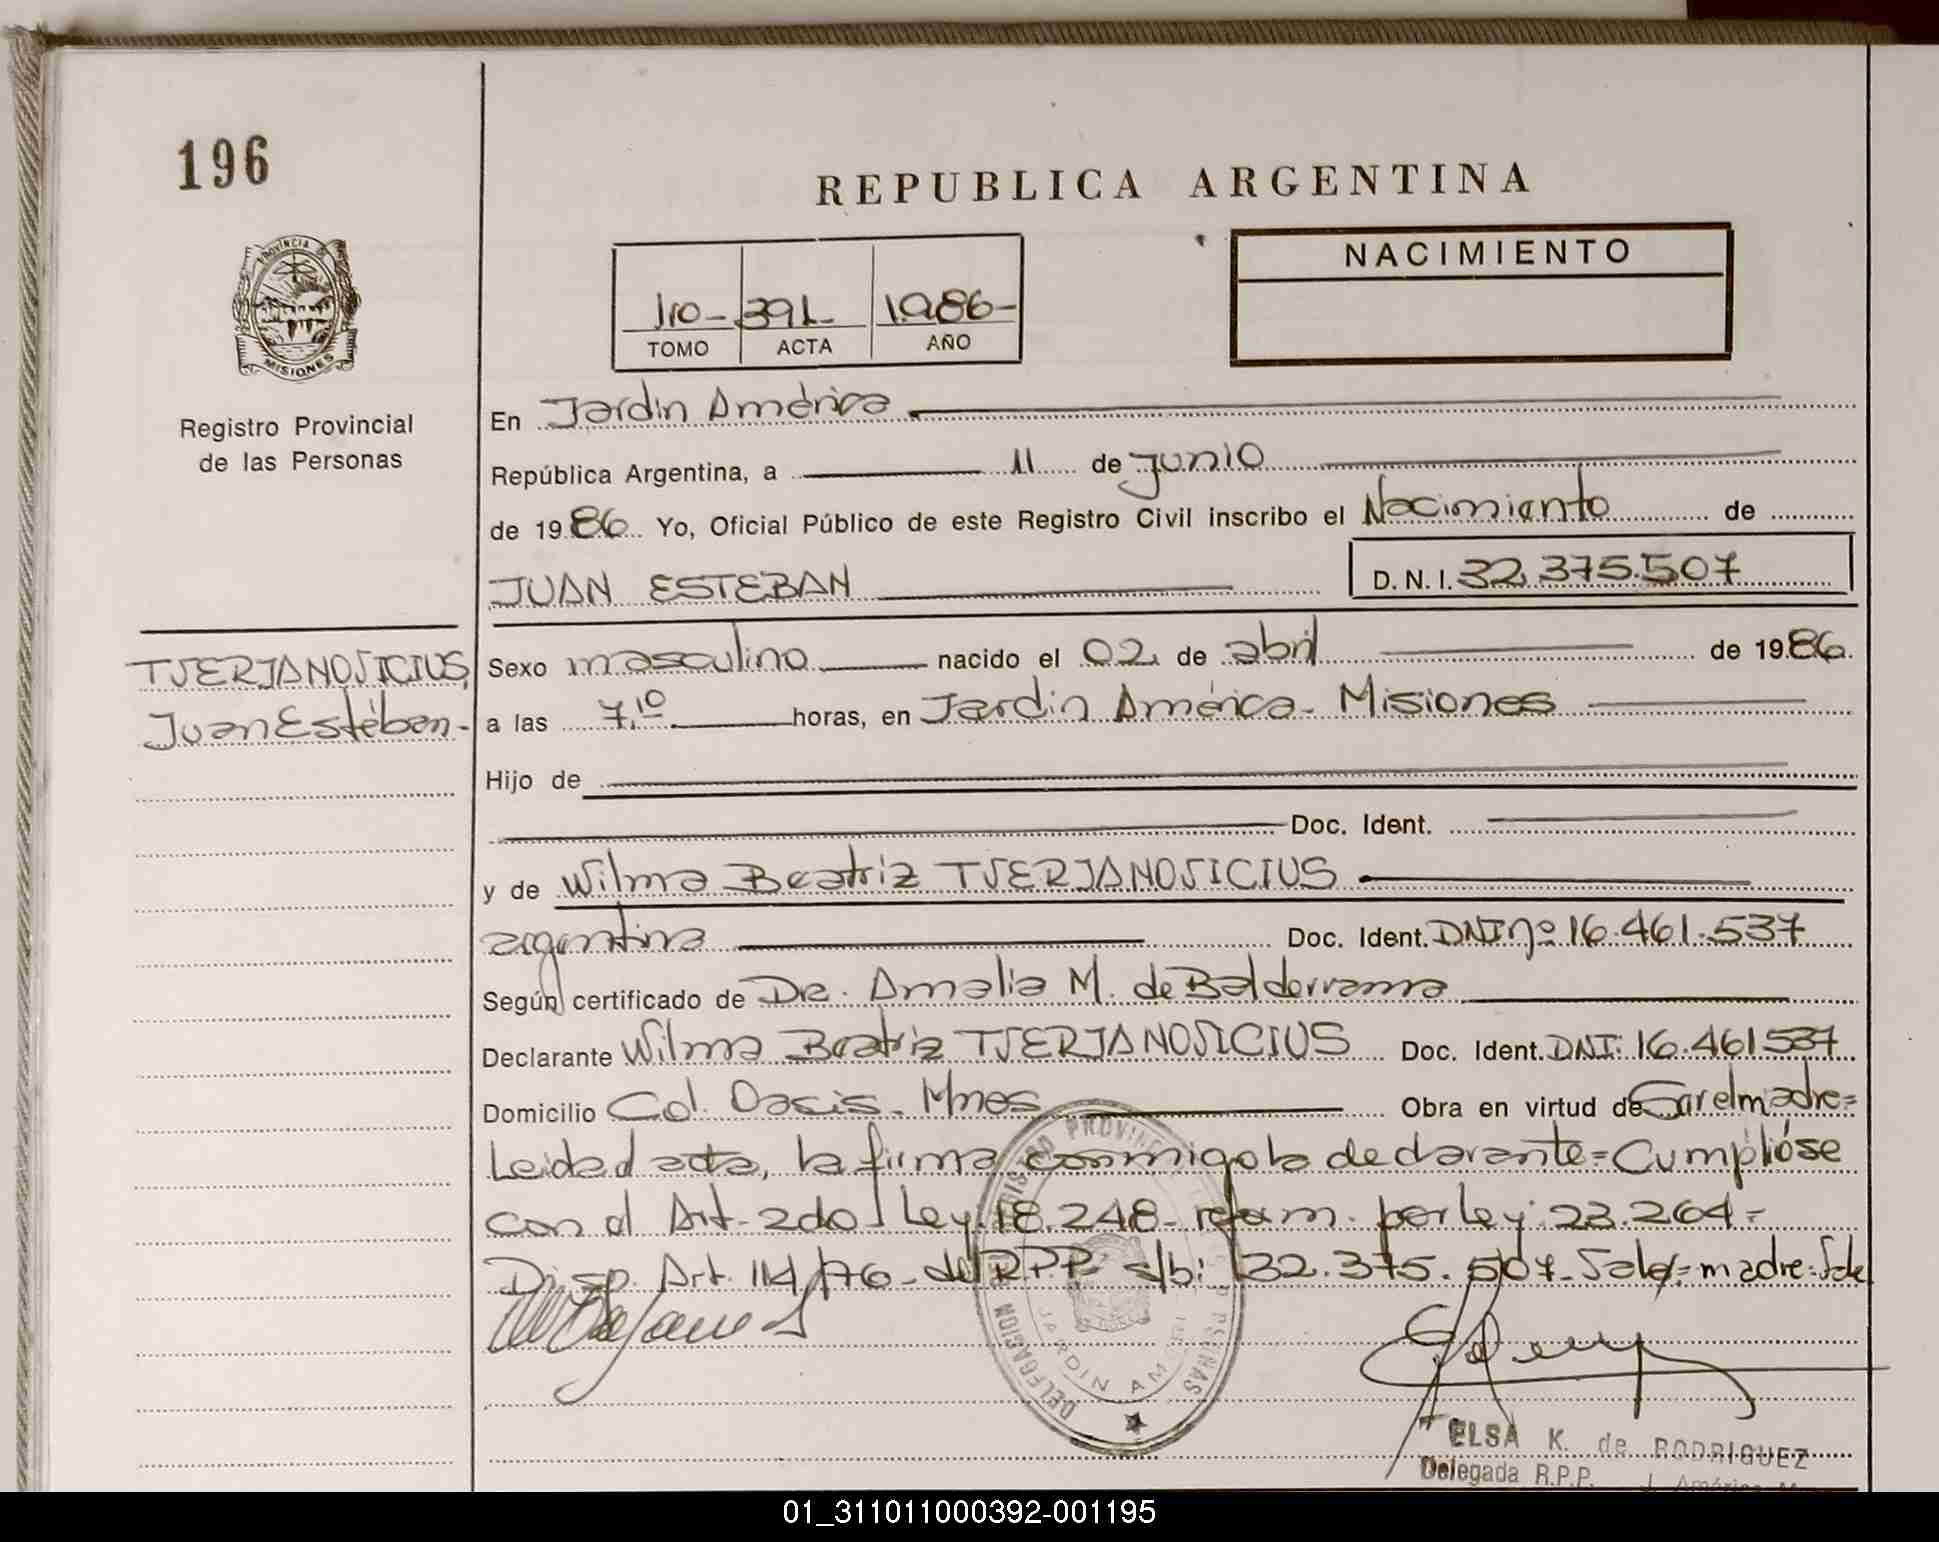 196
REPUBLICA ARGENTINA
PROVINCIA DE MISIONES
NACIMIENTO
1ro- 391- 1.986-
TOMO ACTA AÑO
Registro Provincial
de las Personas
En Jardin América
República Argentina, a 11 de junio
de 1986 Yo, Oficial Público de este Registro Civil inscribo el Nacimiento de
JUAN ESTEBAN D.N.I. 32.375.507
TJERJANOJICIUS,
Juan Estéban-
Sexo masculino nacido el 02 de abril de 1986
a las 7,10 horas, en Jardin América- Misiones
Hijo de
Doc. Ident.
y de Wilma Beatriz TJERJANOJICIUS
argentina Doc. Ident. DNI nº 16.461.537
Según certificado de Dra. Amalia M. de Balderrama
Declarante Wilma Beatriz TJERJANOJICIUS Doc. Ident. DNI: 16.461537
Domicilio Col. Oasis- Mnes Obra en virtud de Ser el madre=
Leida el acta, la firma conmigo la declarante= Cumplióse
con el Art- 2do Ley 18.248- reform. por ley 23.264-
Disp. Art. 114/76- del R.P.P. s/b: 32.375.507- madre:
REGISTRO PROVINCIAL DE LAS PERSONAS
DELEGACION
JARDIN AMERICA
ELSA K. de RODRIGUEZ
Delegada R.P.P. J. América
01_311011000392-001195